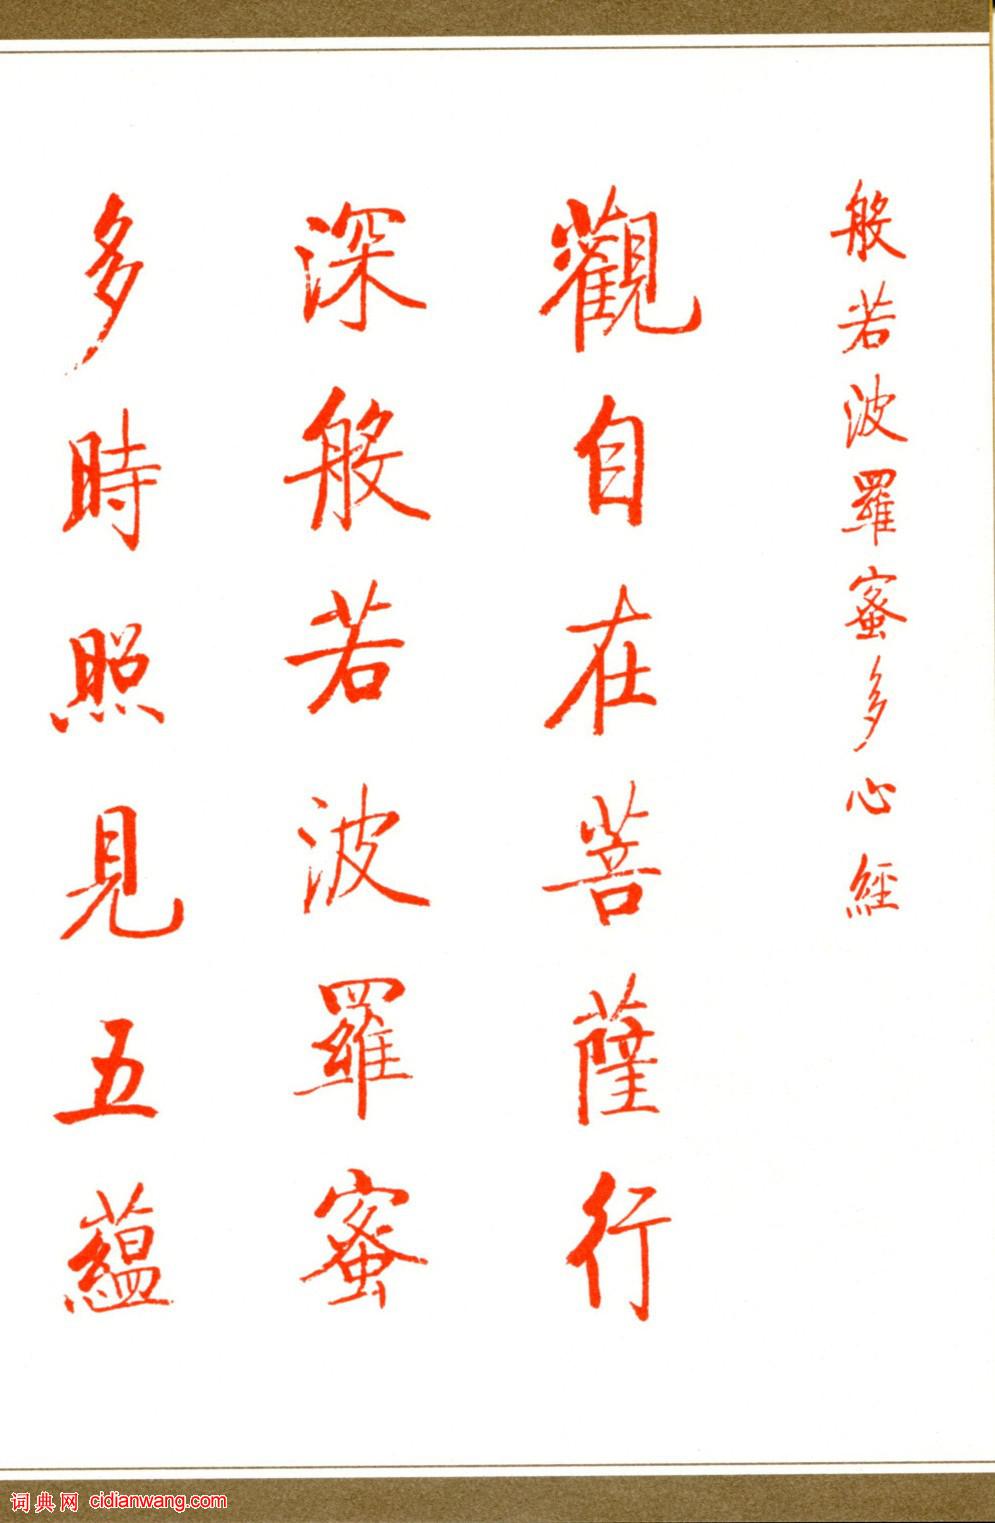 般若波羅蜜多心經
觀自在菩薩行
深般若波羅蜜
多時照見五蘊
词典网 cidianwang.com